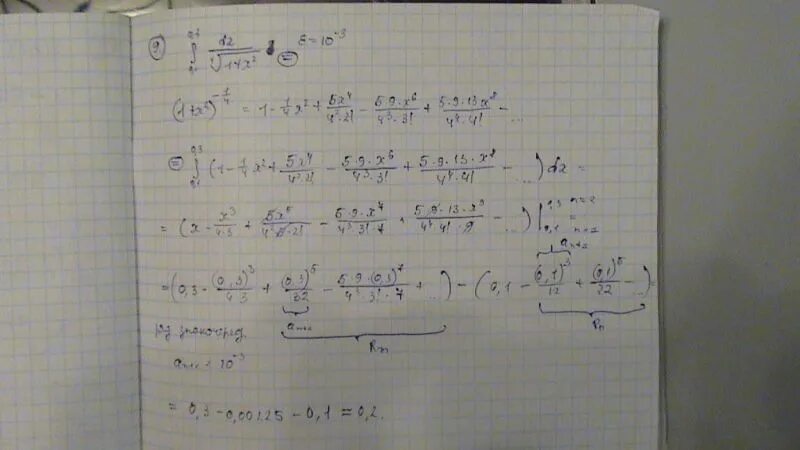 9) ∫_{0,1}^{0,3} dx / ∜(1+x²) = ε=10⁻³
(1+x²)^{-1/4} = 1 - 1/4 x² + 5x⁴/(4²·2!) - 5·9·x⁶/(4³·3!) + 5·9·13x⁸/(4⁴·4!) - ...
= ∫_{0,1}^{0,3} (1 - 1/4 x² + 5x⁴/(4²·2!) - 5·9·x⁶/(4³·3!) + 5·9·13·x⁸/(4⁴·4!) - ...) dx =
= (x - x³/(4·3) + 5x⁵/(4²·5·2!) - 5·9·x⁷/(4³·3!·7) + 5·9·13·x⁹/(4⁴·4!·9) - ...) |_{0,1}^{0,3} =
= (0,3 - (0,3)³/(4·3) + (0,3)⁵/32 - 5·9·(0,3)⁷/(4³·3!·7) + ...) - (0,1 - (0,1)³/12 + (0,1)⁵/32 - ...) =
ряд знакочеред.
aₙ₊₁ < 10⁻³
aₙ₊₁ Rₙ aₙ₊₁ Rₙ
= 0,3 - 0,00225 - 0,1 = 0,2.